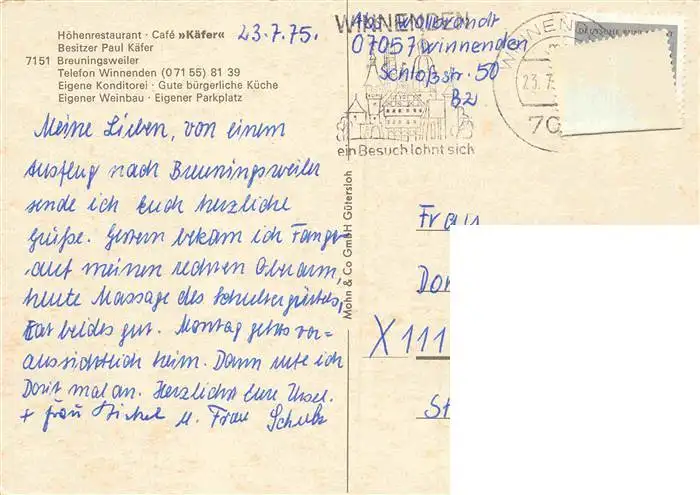 Höhenrestaurant · Café »Käfer«
Besitzer Paul Käfer
7151 Breuningsweiler
Telefon Winnenden (0 71 55) 81 39
Eigene Konditorei · Gute bürgerliche Küche
Eigener Weinbau · Eigener Parkplatz
23.7.75.
Meine Lieben, von einem
Ausflug nach Breuningsweiler
sende ich Euch herzliche
Grüße. Gestern bekam ich Fango
auf meinen rechten Oberarm,
heute Massage des Schultergürtels,
tat beides gut. Montag gehts vor=
aussichtlich heim. Dann rufe ich
Dorit mal an. Herzlichst Eure Ursel.
+ Frau u. Frau Schulz
Mohn & Co GmbH Gütersloh
WINNENDEN
ein Besuch lohnt sich
Abs.
07057 Winnenden
Schloßstr. 50
B2
WINNENDEN
23.7.
70
DEUTSCHE
Frau
Dor
X 111
St